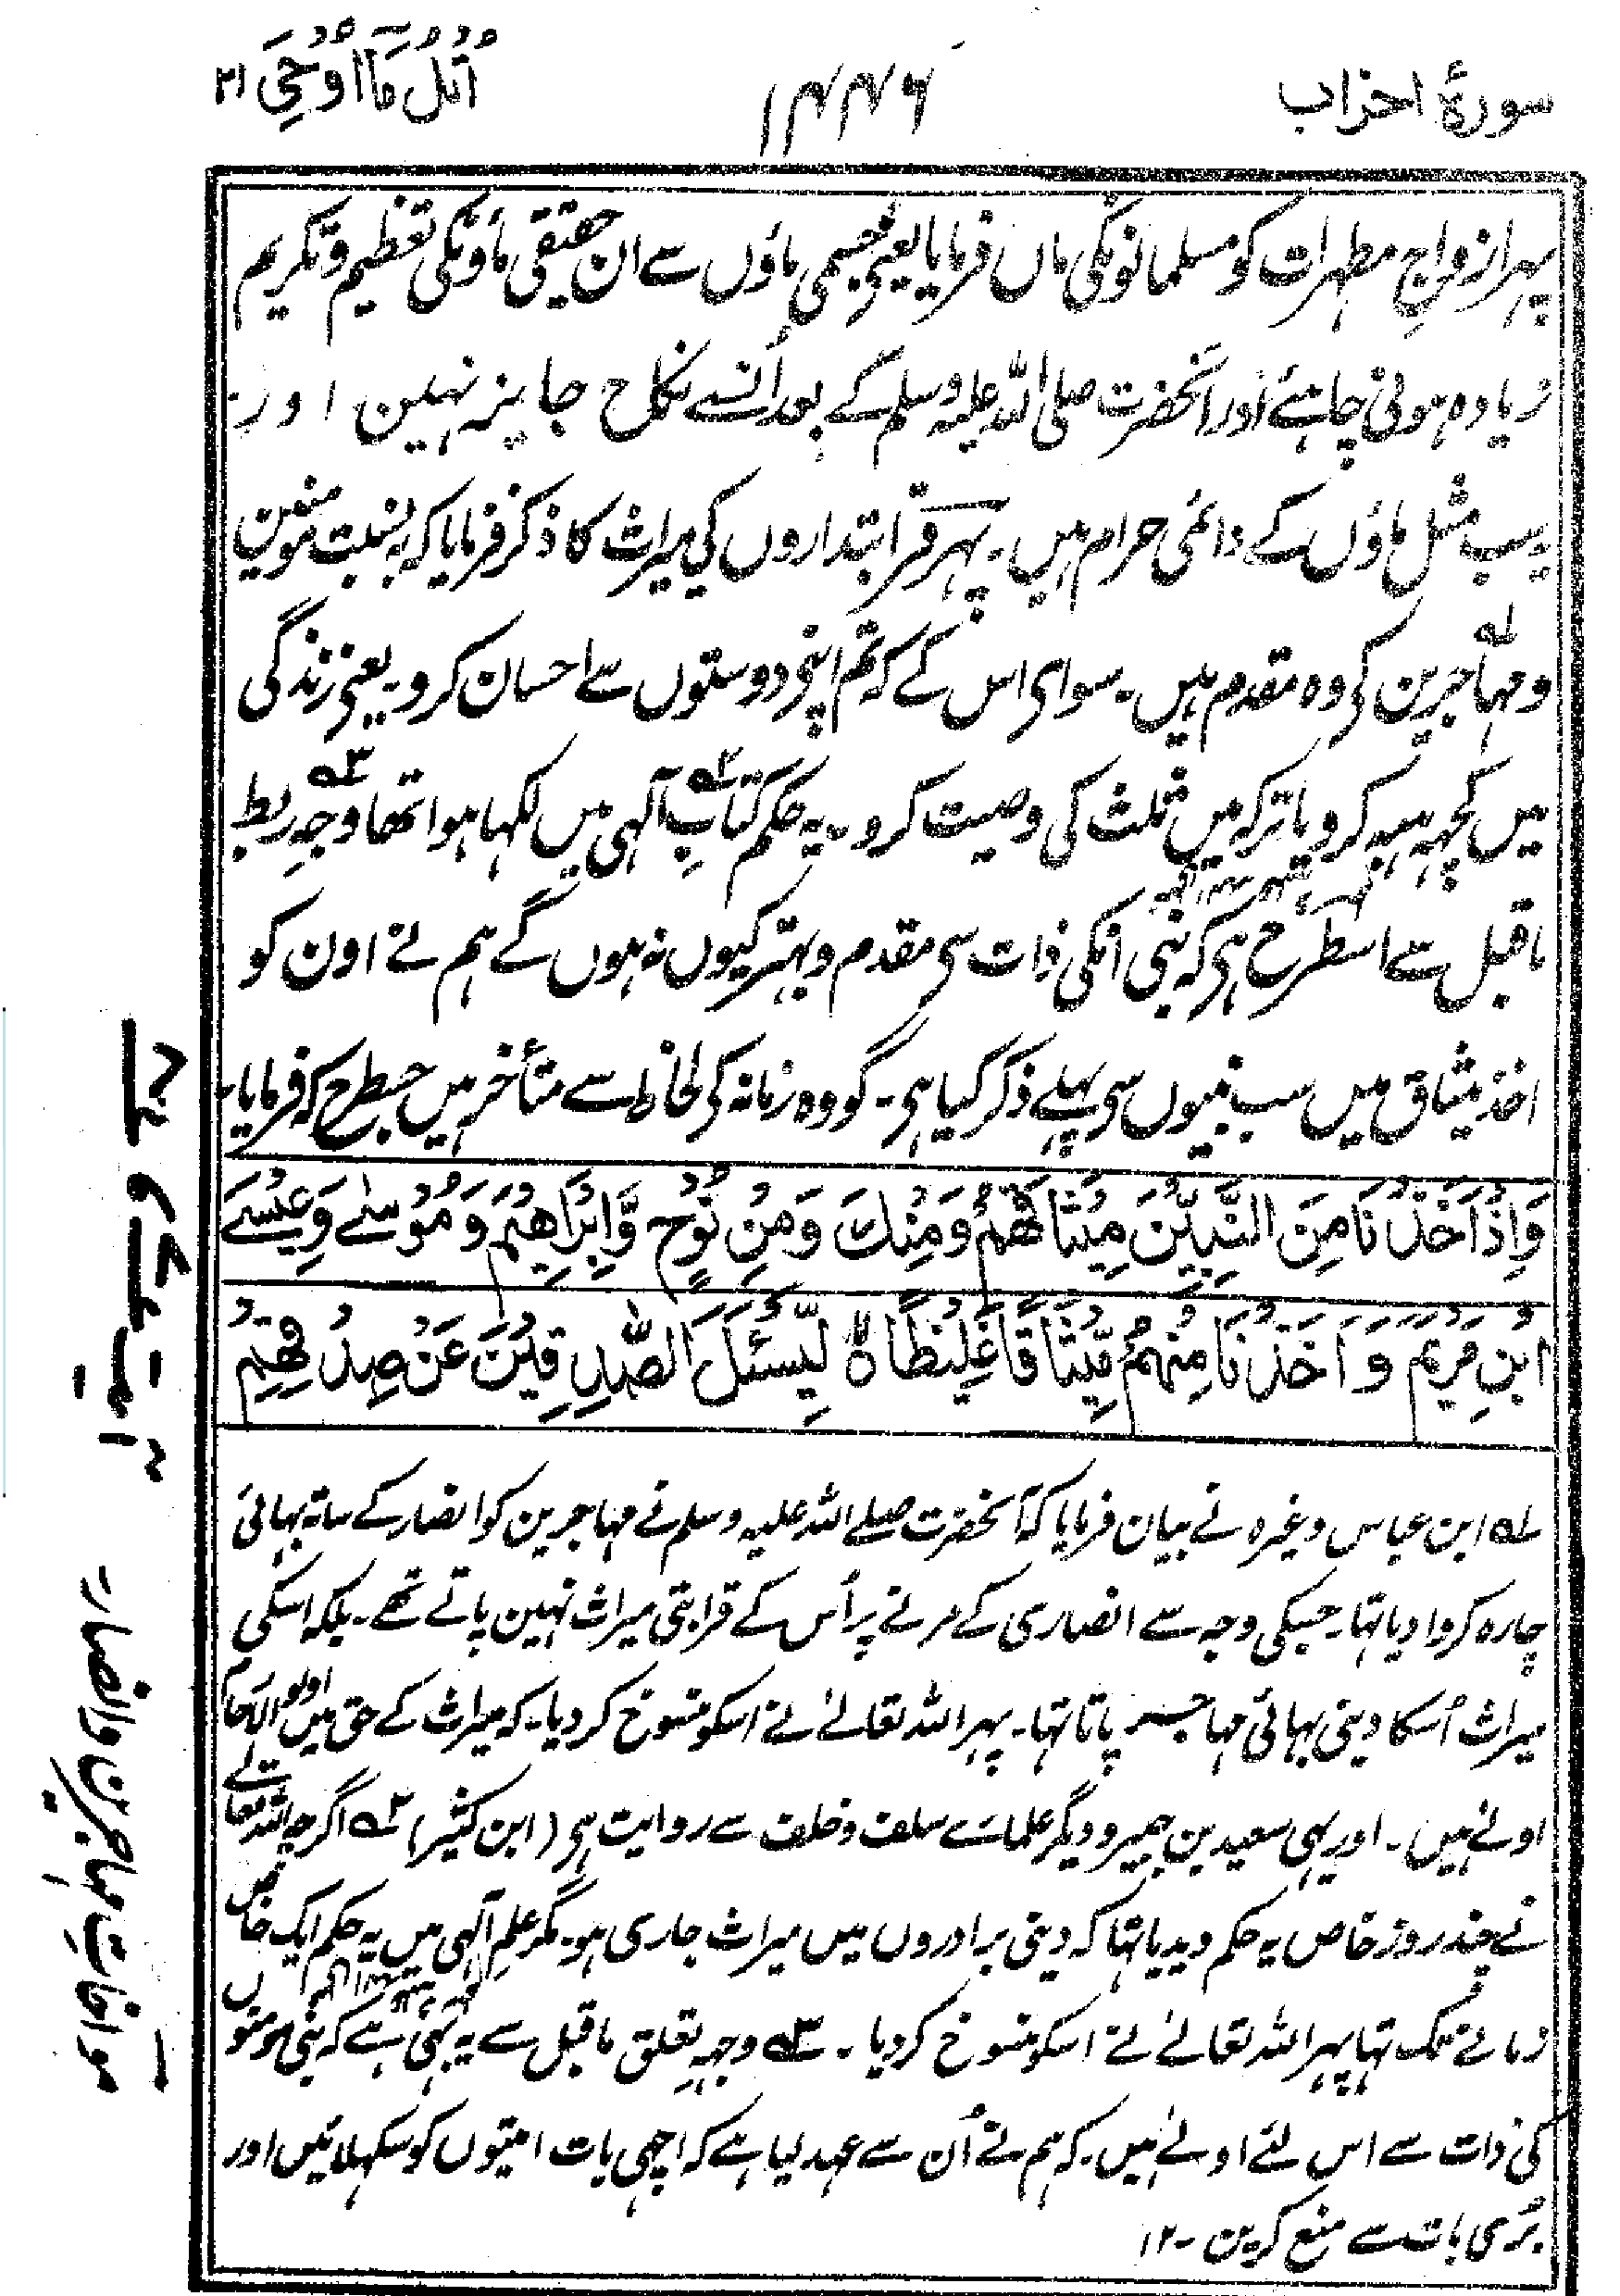 سورۂ احزاب
۱۴۴۶
اُتْلُ مَآ اُوْحِیَ ۲۱
پہر ازواجِ مطہرات کو مسلمانونکی ماں فرمایا یعنی جسمی ماؤں سے ان حقیقی ماؤنکی تعظیم و تکریم
زیادہ ہونی چاہئے اور آنحضرت صلی اللہ علیہ وسلم کے بعد اُنسے نکاح جایز نہین اور
یہ سب مثل ماؤں کے دائمی حرام ہیں۔ پہر قرابتداروں کی میراث کا ذکر فرمایا کہ بہ نسبت مومنین
و مہاجرین ۱ کی وہ مقدم ہیں۔ سوای اس کے کہ تم اپنی دوستوں سے احسان کرو۔ یعنی زندگی
میں کچہہ ہبہ کرو یا ترکہ میں ثلث کی وصیت کرو۔ یہ حکم کتابِ ۲ آلہی میں لکہا ہوا تھا ۳ وجہِ ربط
ماقبل سے اسطرح ہی کہ نبی انکی ذات سی مقدم و بہتر کیوں نہ ہوں گے ہم نے اون کو
اخذ میثاق میں سب نبیوں سی پہلے ذکر کیا ہی۔ گو وہ زمانہ کی لحاظ سے متأخر ہیں جسطرح کہ فرمایا۔
وَاِذْ اَخَذْنَا مِنَ النَّبِیّٖنَ مِیْثَاقَهُمْ وَمِنْكَ وَمِنْ نُّوْحٍ وَّاِبْرَاهِیْمَ وَمُوْسٰے وَعِیْسَے
ابْنِ مَرْیَمَ وَاَخَذْنَا مِنْهُمْ مِّیْثَاقًا غَلِیْظًا ۙ۝ لِّیَسْئَلَ الصّٰدِقِیْنَ عَنْ صِدْقِهِمْ
۱ ابن عباس وغیرہ نے بیان فرمایا کہ آنحضرت صلے اللہ علیہ وسلم نے مہاجرین کو انصار کے ساتہ بہائی
چارہ کروا دیا تہا۔ جسکی وجہ سے انصاری کے مرنے پر اُس کے قرابتی میراث نہین پاتے تھے۔ بلکہ اسکی
میراث اُسکا دینی بہائی مہاجر پاتا تہا۔ پہر اللہ تعالےٰ نے اسکو منسوخ کردیا۔ کہ میراث کے حق میں اولو الارحام
اولےٰ ہیں۔ اور یہی سعید بن جبیر و دیگر علماے سلف و خلف سے روایت ہی (ابن کثیر) ۲ اگرچہ اللہ تعالے
نے چند روز خاص یہ حکم دیدیا تہا کہ دینی برادروں میں میراث جاری ہو۔ مگر علمِ آلہی میں یہ حکم ایک خاص
زمانے تک تہا پہر اللہ تعالےٰ نے اسکو منسوخ کردیا۔ ۳ وجہہِ تعلق ماقبل سے یہ بہی ہے کہ نبی مومنوں
کی ذات سے اس لئے اولےٰ ہیں۔ کہ ہم نے اُن سے عہد لیا ہے کہ اچہی بات امتیوں کو سکہلائیں اور
بُری بات سے منع کریں۔ ۱۲
مواخات مہاجرین و انصار